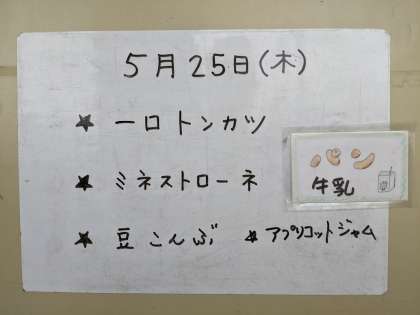 5月25日(木)
★ 一口トンカツ
パン
牛乳
★ ミネストローネ
★ 豆こんぶ ★ アプリコットジャム